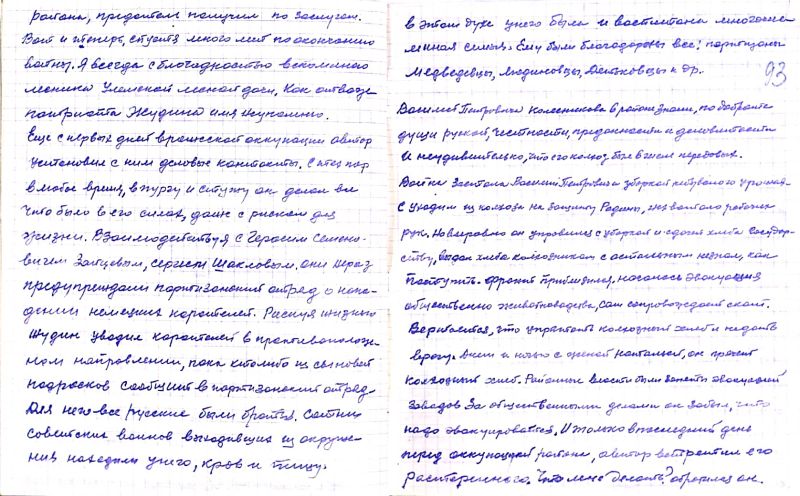 района, предатели получили по заслугам.
Вот и теперь, спустя много лет по окончанию
войны. Я всегда с благодарностью вспоминаю
лесника Улемской лесной дачи, как отважного
патриота Жудина имя жупанино.
Еще с первых дней вражеской оккупации автор
установил с ним деловые контакты. С тех пор
в любое время, в пургу и стужу он делал все
что было в его силах, даже с риском для
жизни. Взаимодействуя с Герасим Семено-
вичем Зайцевым, Сергеем Шакловым, они не раз
предупреждали партизанский отряд о напа-
дении немецких карателей. Рискуя жизнью
Жудин уводил карателей в противополож-
ном направлении, пока кто либо из сыновей
подростков сообщит в партизанский отряд.
Для него все русские были братья. Сотни
советских воинов выходивших из окруже-
ния находили у него, кров и пищу.
в этом духе у него была и воспитана многочис-
ленная семья. Ему были благодарны все: партизаны
Медведевцы, Людиновцы, Дятьковцы и др.
93
Василий Петровича Колесникова в районе знали, по доброте
души русской, честности, преданности и деловитости
И неудивительно, что его колхоз был в числе передовых.
Война застала Василия Петровича уборкой небывалого урожая.
С уходом из колхоза на защиту Родины, не хватало рабочих
рук. Но вировно он управился с уборкой и сдачей хлеба государ-
ству, выдал хлеба колхозникам с остальным незнал, как
поступить. Фронт приближался. началась эвакуация
общественно животноводства, сам сопровождает скот.
Вернулся, что упрятать колхозный хлеб и недать
врагу. Днем и ночью с женой Натальей, он прячет
колхозный хлеб. Районные власти были заняты эвакуацией
заводов За общественными делами он забыл, что
надо эвакуироваться. И только в последний день
перед оккупацией района, автор встретил его
растерянного. Что мне делать? обратился он.